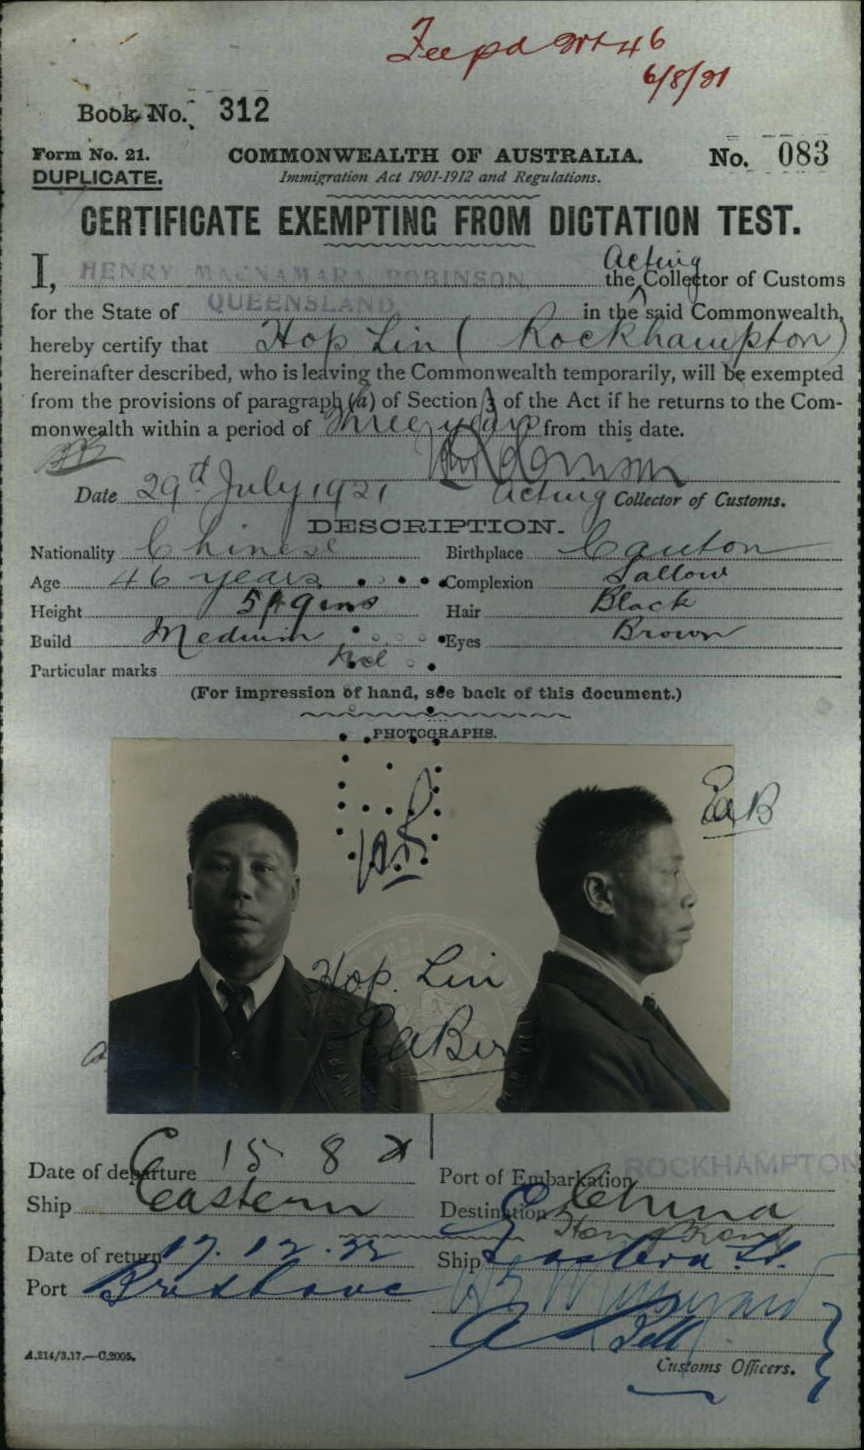 Fee pd
6/8/21
Book No. 312
Form No. 21. COMMONWEALTH OF AUSTRALIA. No. 083
DUPLICATE. Immigration Act 1901-1912 and Regulations.
CERTIFICATE EXEMPTING FROM DICTATION TEST.
Acting
I, HENRY MACNAMARA ROBINSON, the Collector of Customs
for the State of QUEENSLAND in the said Commonwealth,
hereby certify that Hop Lin (Rockhampton)
hereinafter described, who is leaving the Commonwealth temporarily, will be exempted
from the provisions of paragraph (a) of Section 3 of the Act if he returns to the Com-
monwealth within a period of Three years from this date.
Date 29th July 1921 Acting Collector of Customs.
DESCRIPTION.
Nationality Chinese Birthplace Canton
Age 46 years Complexion Sallow
Height 5ft 9ins Hair Black
Build Medium Eyes Brown
Particular marks Nil
(For impression of hand, see back of this document.)
PHOTOGRAPHS.
Hop Lin
Date of departure 15 8 21 Port of Embarkation ROCKHAMPTON
Ship Eastern Destination China
Hong Kong
Date of return 17.12.22 Ship Eastern
Port Brisbane
A.214/3.17.—C.2005. Customs Officers.